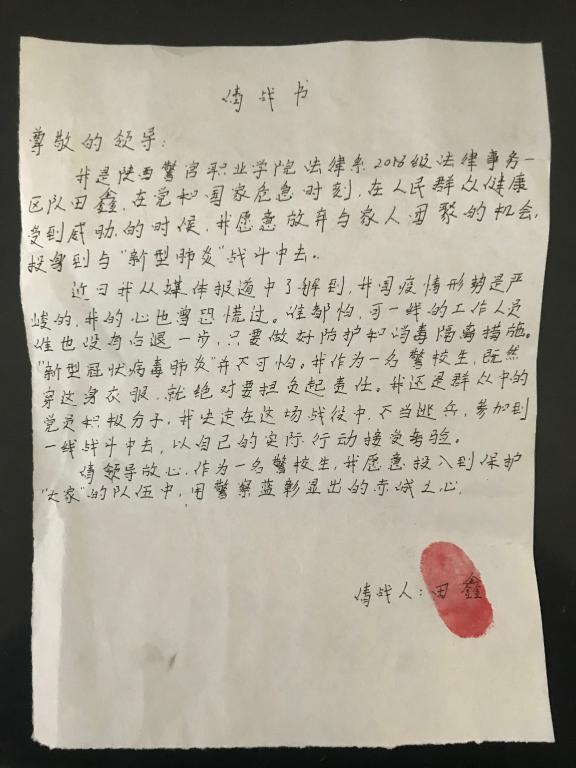 请战书
尊敬的领导:
我是陕西警官职业学院法律系2018级法律事务一
区队田鑫,在党和国家危急时刻,在人民群众健康
受到威胁的时候,我愿意放弃与家人团聚的机会,
投身到与“新型肺炎”战斗中去。
近日我从媒体报道中了解到,我国疫情形势是严
峻的,我的心也曾恐慌过。谁都怕,可一线的工作人员
谁也没有后退一步,只要做好防护和消毒隔离措施。
“新型冠状病毒肺炎”并不可怕。我作为一名警校生,既然
穿这身衣服,就绝对要担负起责任。我还是群众中的
党员积极分子,我决定在这场战役中,不当逃兵,参加到
一线战斗中去,以自己的实际行动接受考验。
请领导放心,作为一名警校生,我愿意投入到保护
“大家”的队伍中,用警察蓝彰显出的赤诚之心.
请战人:田鑫